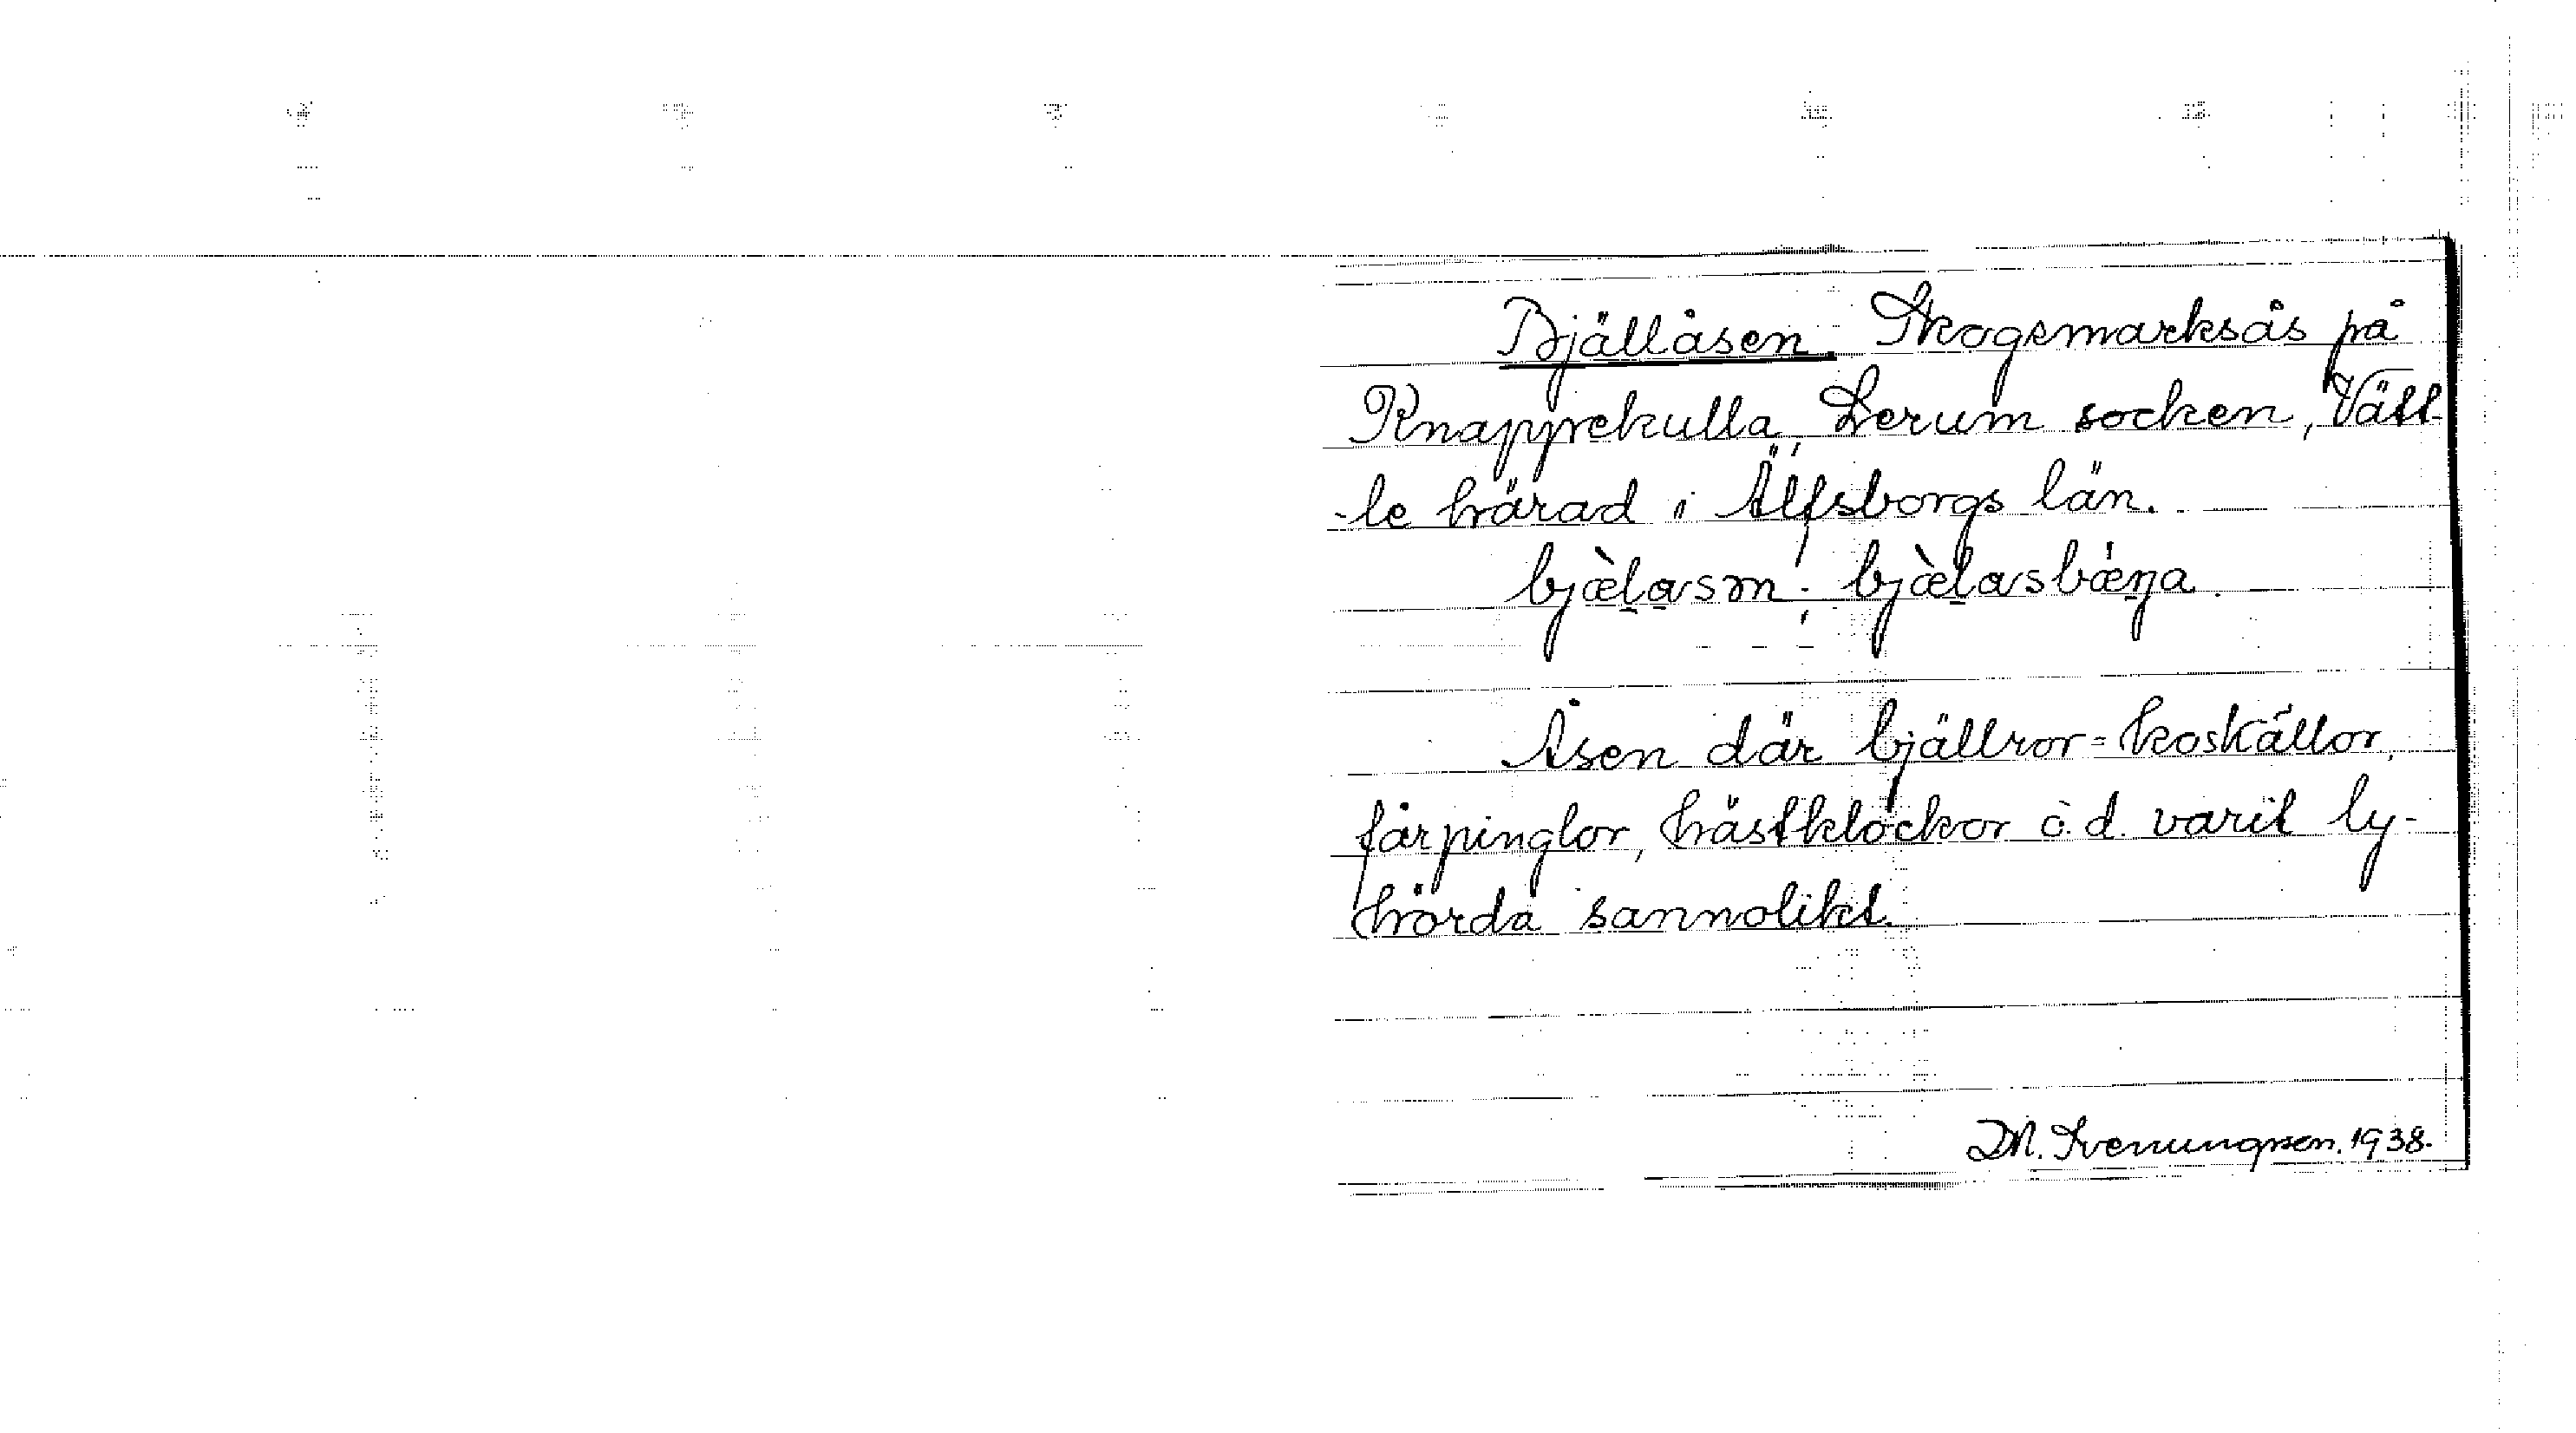 Bjällåsen Skogsmarksås på
Knapprekulla, Lerum socken, Vätt-
-le härad i Älfsborgs län.
bjæ̀lasən; bjæ̀lasbǽŋa.
Åsen där bjällror = koskällor,
fårpinglor, hästklockor o. d. varit ly-
hörda sannolikt.
D. M. Svenungsson. 1938.